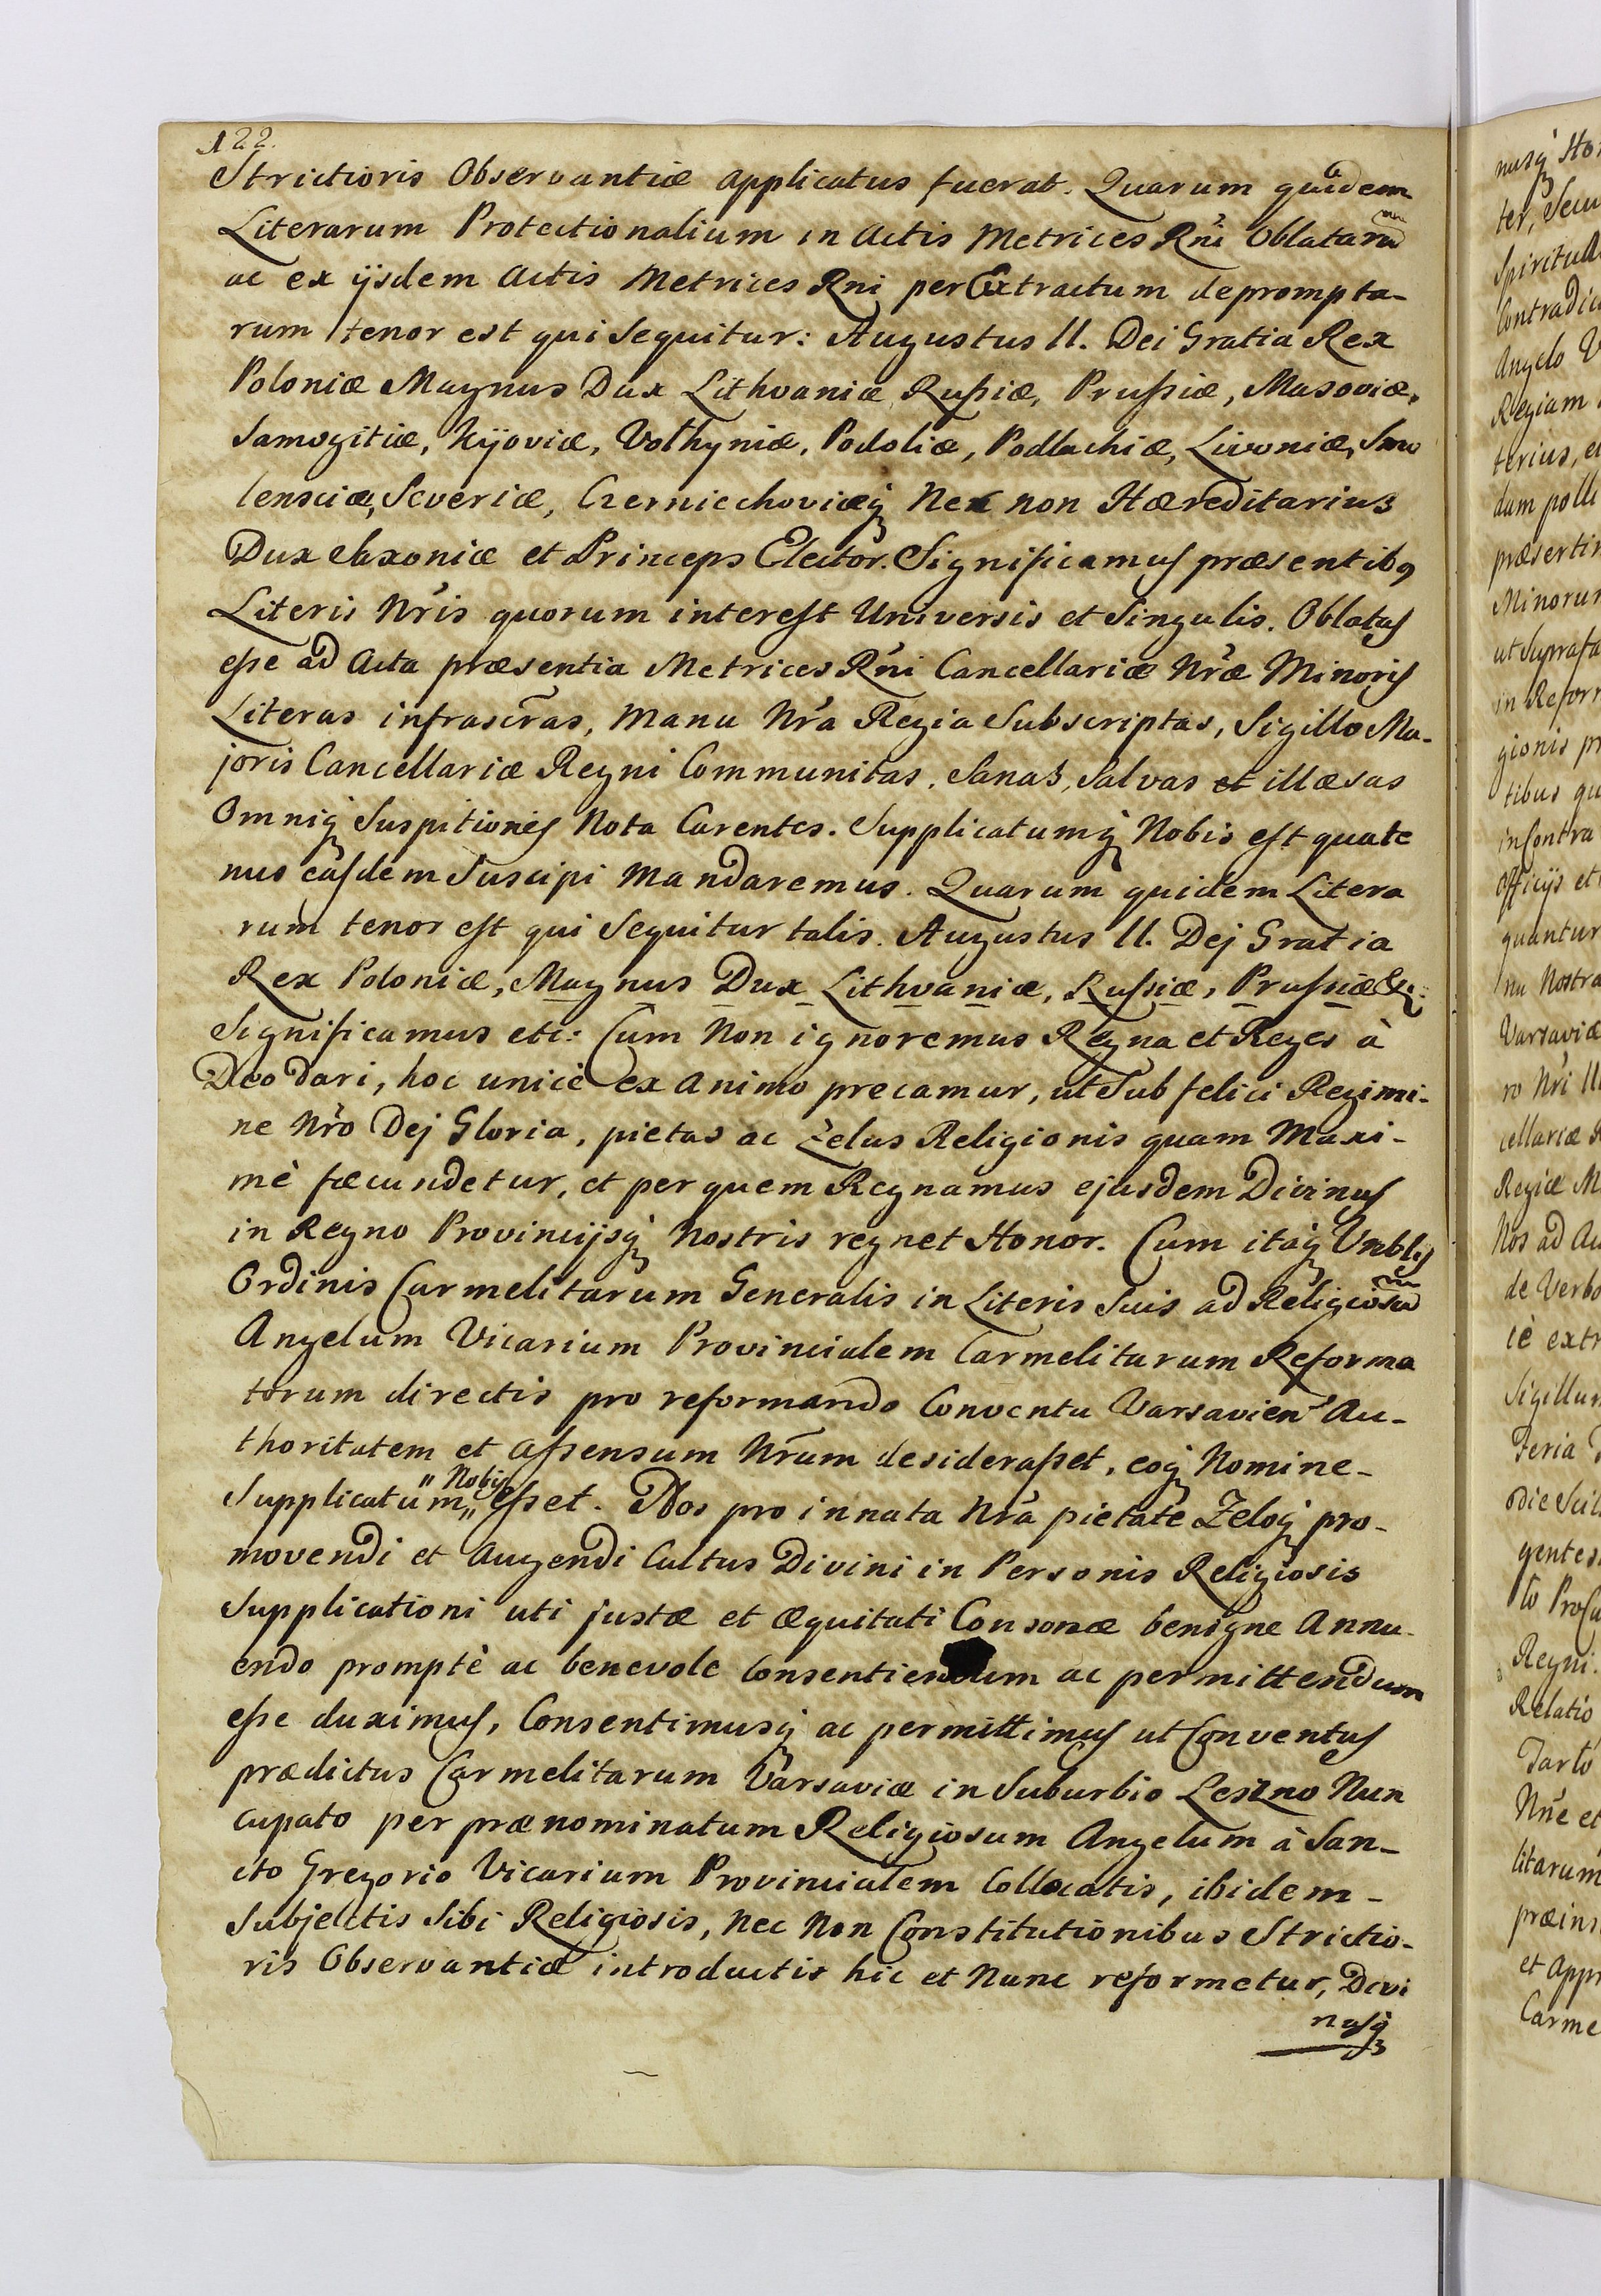 122.
Strictioris Observantiæ applicatus fuerat. Quarum quidem
Literarum Protectionalium in Actis Metrices Rñi Oblatarũ
ac ex ijsdem Actis Metrices Rni per Extractum deprompta-
rum tenor est qui Sequitur: Augustus II. Dei Gratia Rex
Poloniæ Magnus Dux Lithvaniæ Rußiæ, Prußiæ, Masoviæ,
Samogitiæ, Kijoviæ, Volhyniæ, Podoliæ, Podlachiæ, Livoniæ, Smo
lensciæ, Severiæ, Czerniechoviæq̃ Nec non Hæreditarius
Dux Saxoniæ et Princeps Elector. Significamus præsentibq
Literis Nr̃is quorum interest Universis et Singulis. Oblatas
eße ad Acta præsentia Metrices Rñi Cancellariæ Nr̃æ Minoris
Literas infrascr̃as, Manu Nr̃a Regia Subscriptas, Sigillo Ma-
joris Cancellariæ Regni Communitas. Sanas, Salvas et illæsas
Omniq̃ Suspitionis Nota Carentes. Supplicatumq̃ Nobis est quate
nus easdem Suscipi Mandaremus. Quarum quidem Litera
rum tenor est qui Sequitur talis. Augustus II. Dej Gratia
Rex Poloniæ, Magnus Dux Lithvaniæ, Rußiæ, Prußiæ &c:
Significamus etc: Cum Non ignoremus Regna et Reges à
Deo Dari, hoc unicè ex Animo precamur, ut Sub felici Regimi-
ne Nr̃o Dej Gloria, pietas ac Zelus Religionis quam Maxi-
mè fæcundetur, et per quem Regnamus ejusdem Divinus
in Regno Provincijsq̃ Nostris regnet Honor. Cum itaq̃ Vnblis
Ordinis Carmelitarum Generalis in Literis Suis ad Religiosũ
Angelum Vicarium Provincialem Carmelitarum Reforma
torum directis pro reformando Conventu Varsavien̄ Au-
thoritatem et Aßensum Nr̃um desideraßet, eoq̃ Nomine-
Supplicatum "Nobis" eßet. Nos pro innata Nr̃a pietate Zeloq̃ pro-
movendi et Augendi Cultus Divini in Personis Religiosis
Supplicationi uti justæ et æquitati Consonæ benigne Annu-
endo promptè ac benevole Consentiendum ac permittendum
eße duximus, Consentimusq̃ ac permittimus ut Conventus
prædictus Carmelitarum Varsaviæ in Suburbio Leszno Nun
cupato per prænominatum Religiosum Angelum à San-
cto Gregorio Vicarium Provincialem Collocatis, ibidem-
Subjectis Sibi Religiosis, Nec Non Constitutionibus Strictio-
ris Observantiæ introductis hic et Nunc reformetur, Divi
nusq̃
nusq̃ Ho
ter, Secu
Spiritua
Contradic
Angelo V
Regiam
terius, e
dam polli
præserti
Minorum
ut Supra
in Refor
gionis pr
tibus qu
in Contra
Officijs et
quantur
nu Nostra
Varsaviæ
ro Nr̃i II
cellariæ
Regiæ M
Nos ad Au
de Verbo
iè extr
Sigillum
Feria
die Sci
gentes
to Procu
Regni.
Relatio
Tarło
Nñe et
litarum
præins
et Appr
Carme